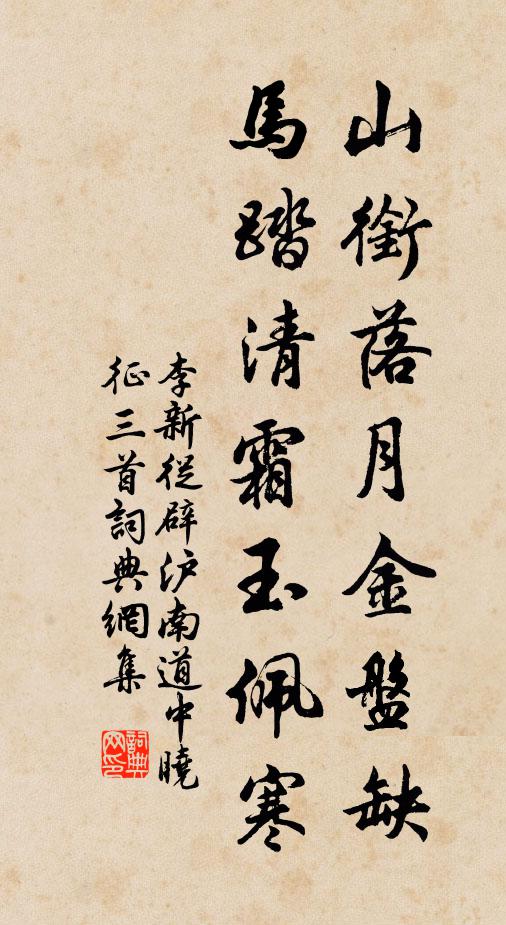 山銜落月金盤缺
馬踏清霜玉佩寒
李新從辟沪南道中曉
征三首詞典網集
詞典
网印